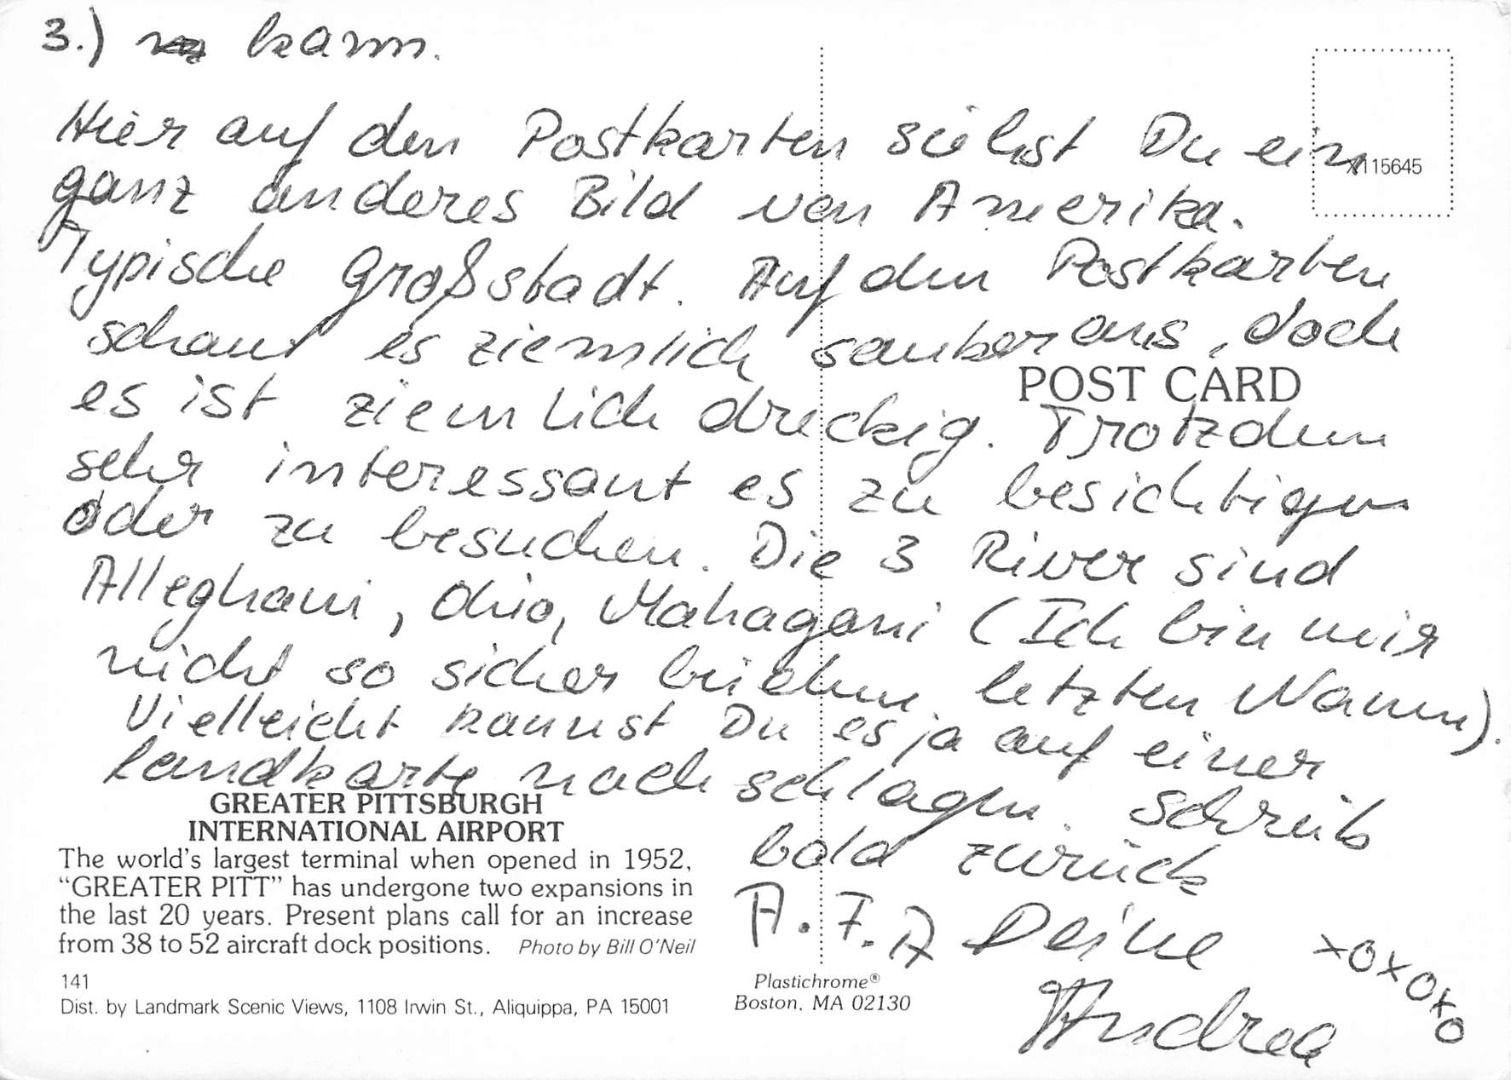 3.) kann.
Hier auf den Postkarten siehst Du ein
X115645
ganz anderes Bild von Amerika.
Typische Großstadt. Auf den Postkarten
schaut es ziemlich sauber aus, doch
POST CARD
es ist ziemlich dreckig. Trotzdem
sehr interessant es zu besichtigen
oder zu besuchen. Die 3 River sind
Alleghani, Ohio, Mahagani (Ich bin mir
nicht so sicher bei dem letzten Namen).
Vielleicht kannst Du es ja auf einer
Landkarte nach schlagen. Schreib
bald zurück
A.F.A Deine
xoxoxo
Andrea
GREATER PITTSBURGH
INTERNATIONAL AIRPORT
The world's largest terminal when opened in 1952,
“GREATER PITT” has undergone two expansions in
the last 20 years. Present plans call for an increase
from 38 to 52 aircraft dock positions. Photo by Bill O'Neil
141
Dist. by Landmark Scenic Views, 1108 Irwin St., Aliquippa, PA 15001
Plastichrome®
Boston, MA 02130